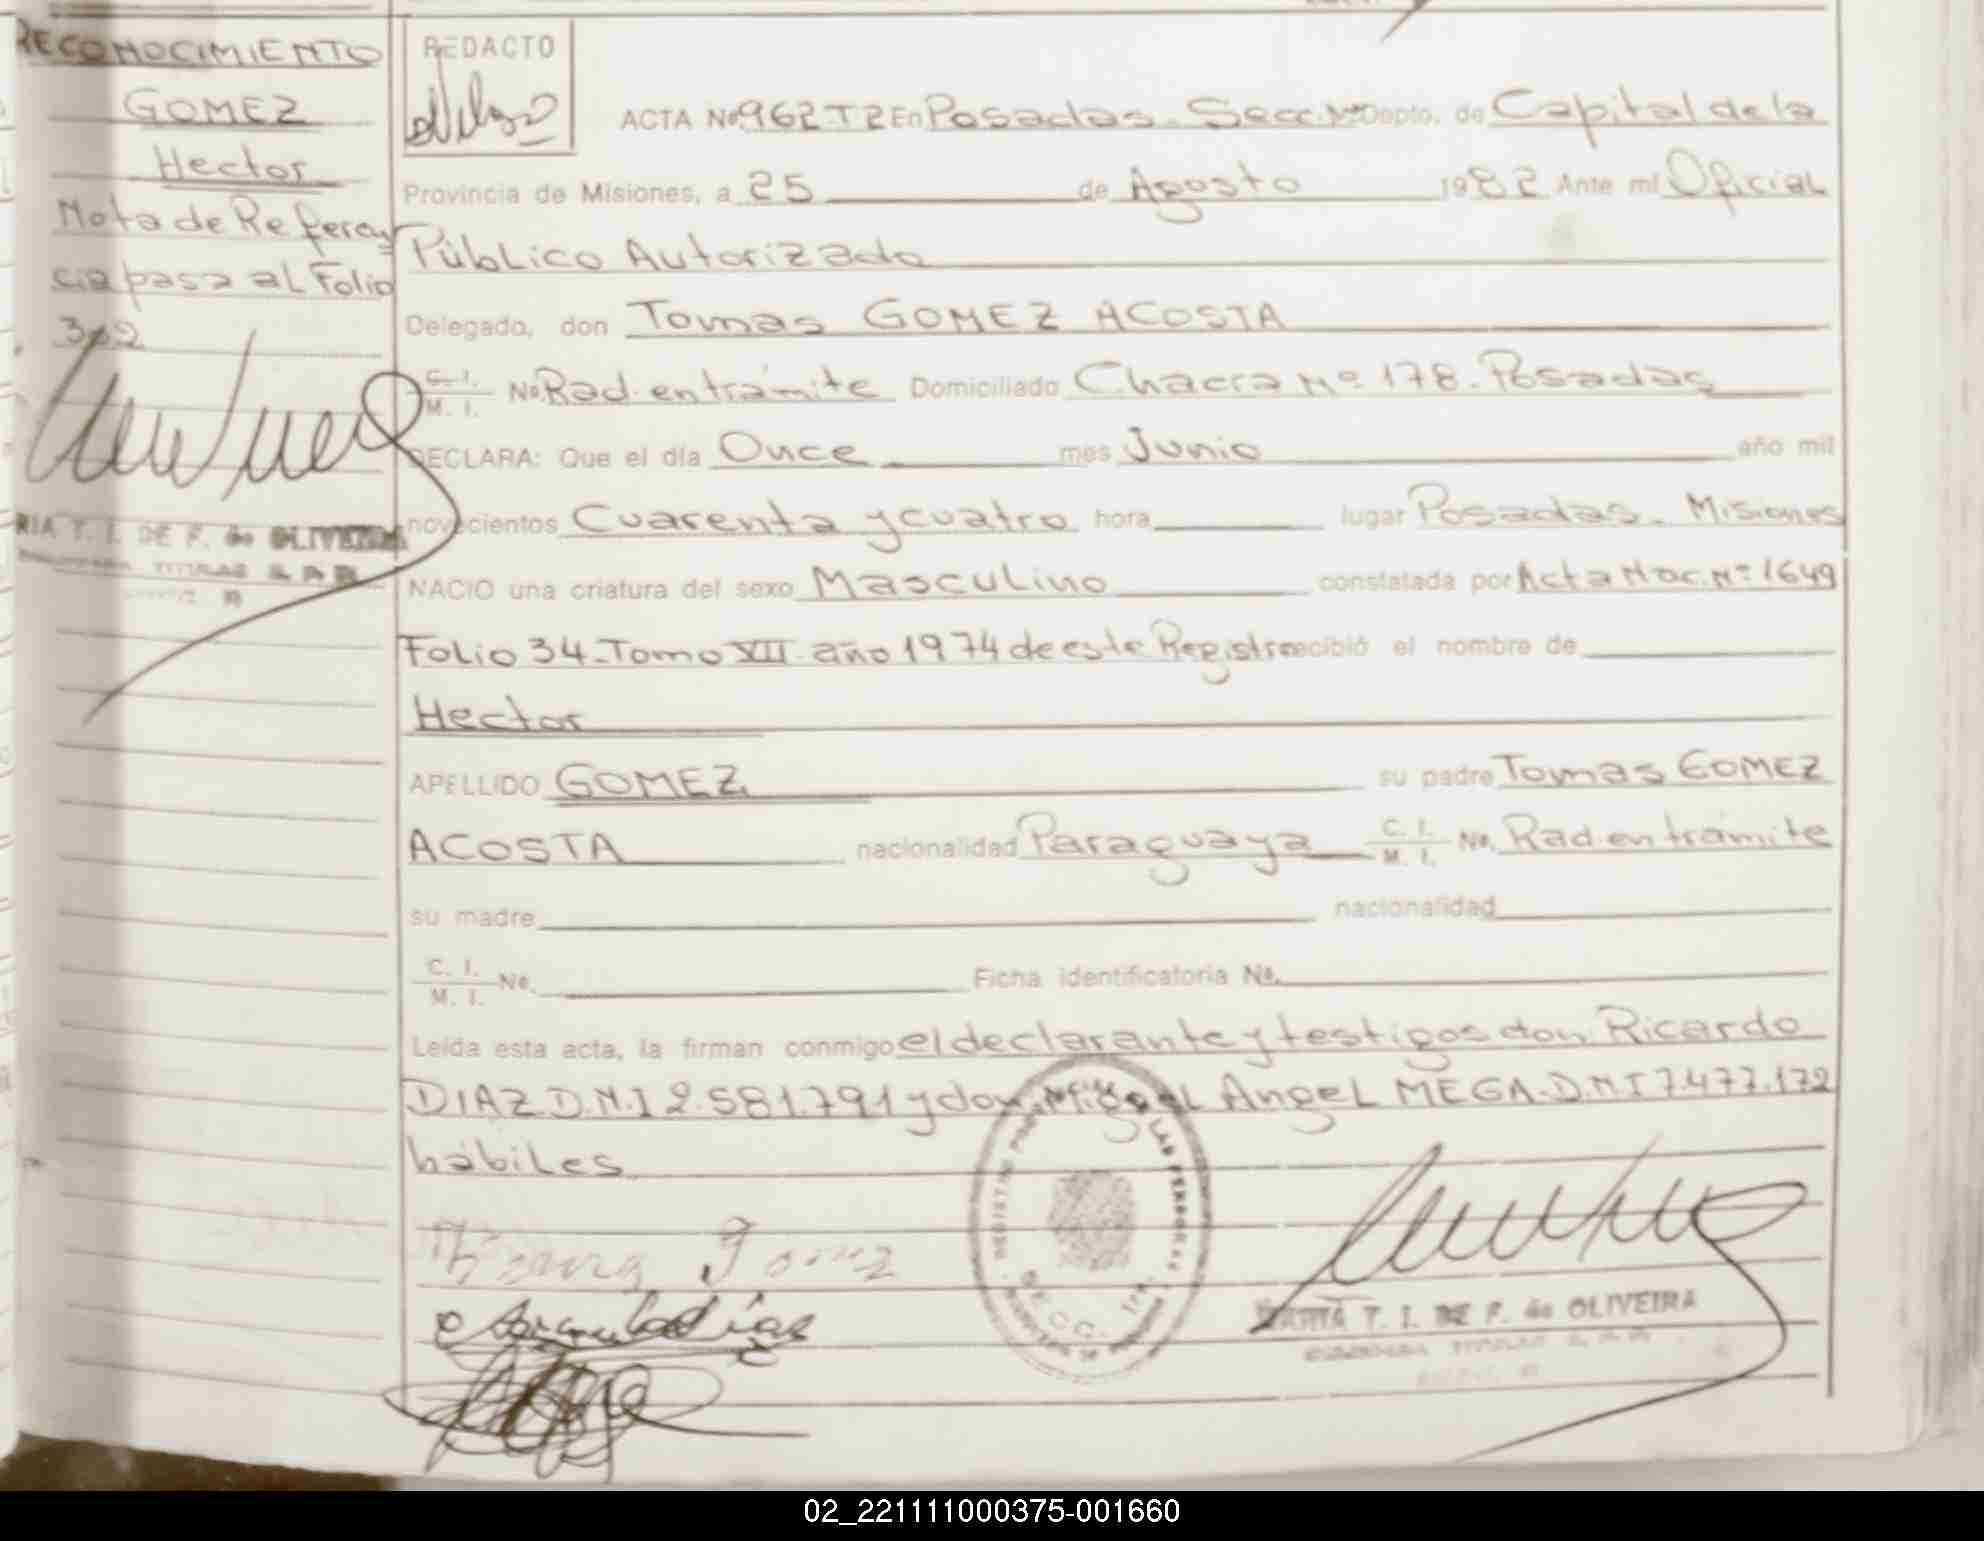 RECONOCIMIENTO
GOMEZ
Hector
Nota de Referen
cia pasa al Folio
302
MARIA T. I. DE F. de OLIVEIRA
REDACTO
ACTA No 962 T2 En Posadas. Secc. 1ra Depto. de Capital de la
Provincia de Misiones, a 25 de Agosto 1982 Ante mí Oficial
Público Autorizado
Delegado, don Tomas GOMEZ ACOSTA
C. I. M. I. No. Rad. en trámite Domiciliado Chacra Nº 178. Posadas
DECLARA: Que el día Once mes Junio año mil
novecientos Cuarenta y cuatro hora lugar Posadas. Misiones
NACIO una criatura del sexo Masculino constatada por Acta Nac. Nº 1649
Folio 34. Tomo VII. año 1974 de este Registro recibió el nombre de
Hector
APELLIDO GOMEZ su padre Tomas GOMEZ
ACOSTA nacionalidad Paraguaya C. I. M. I. No. Rad. en trámite
su madre nacionalidad
C. I. M. I. No. Ficha identificatoria No.
Leída esta acta, la firman conmigo el declarante y testigos don Ricardo
DIAZ. D.N.I 2.581.791 y don Miguel Angel MEGA. D.N.I 7.477.172
hábiles
REGISTRO PROVINCIAL DE LAS PERSONAS
SECC. 1ra.
MARIA T. I. DE F. de OLIVEIRA
02_221111000375-001660